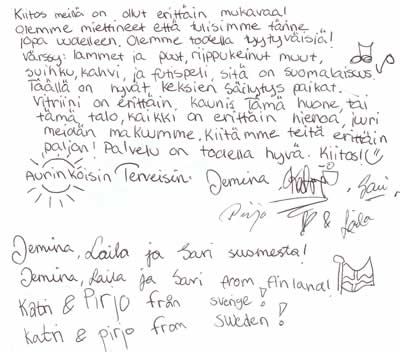 Kiitos meillä on ollut erittäin mukavaa!
Olemme miettineet että tulisimme tänne
jopa uudelleen. Olemme todella tyytyväisiä!
Värssy: lammet ja puut, riippukeinut muut,
suihku, kahvi, ja futispeli, sitä on suomalaisuus.
Täällä on hyvät keksien säilytys paikat.
Vitriini on erittäin kaunis. Tämä huone, tai
tämä talo, kaikki on erittäin hienoa, juuri
meidän makuumme. Kiitämme teitä erittäin
paljon! Palvelu on todella hyvä. Kiitos!
Aurinkoisin Terveisin: Jemina, Katri, Sari,
Pirjo & Laila
Jemina, Laila ja Sari suomesta!
Jemina, Laila ja Sari from finland!
Katri & Pirjo från sverige!
katri & pirjo from sweden!